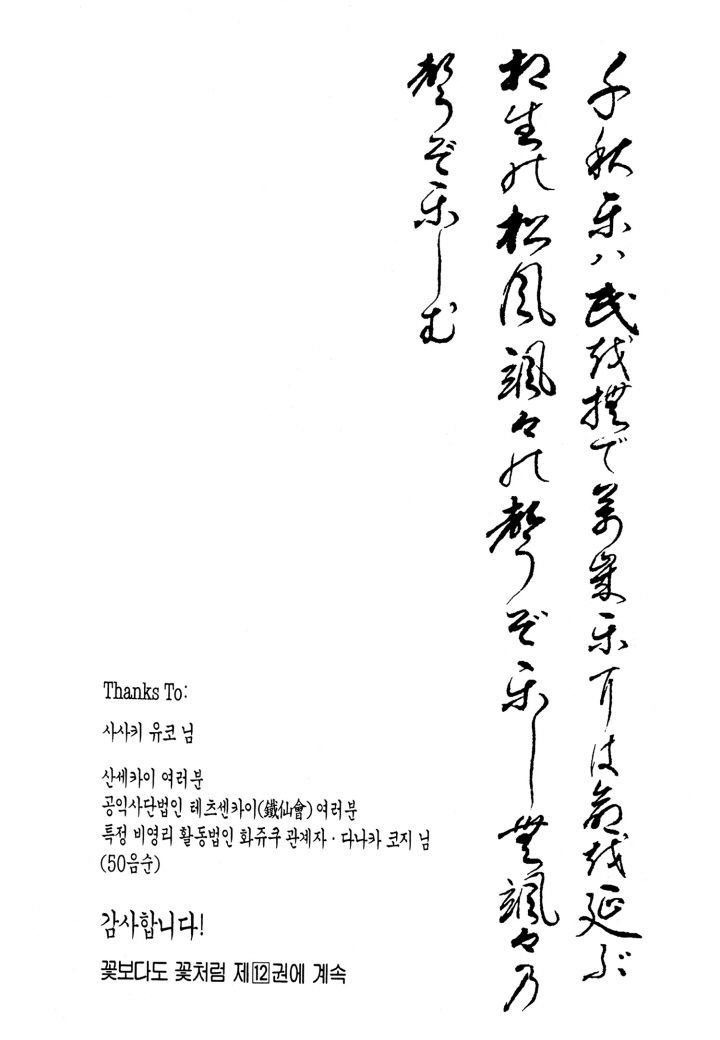 千秋楽ハ民越撫で萬歳楽耳は命越延ぶ
相生能松風颯々能聲ぞ楽し無颯々乃
聲ぞ楽しむ
Thanks To:
사사키 유코 님
산세카이 여러분
공익사단법인 테츠센카이(鐵仙會)여러분
특정 비영리 활동법인 화쥬쿠 관계자·다나카 코지 님
(50음순)
감사합니다!
꽃보다도 꽃처럼 제12권에 계속